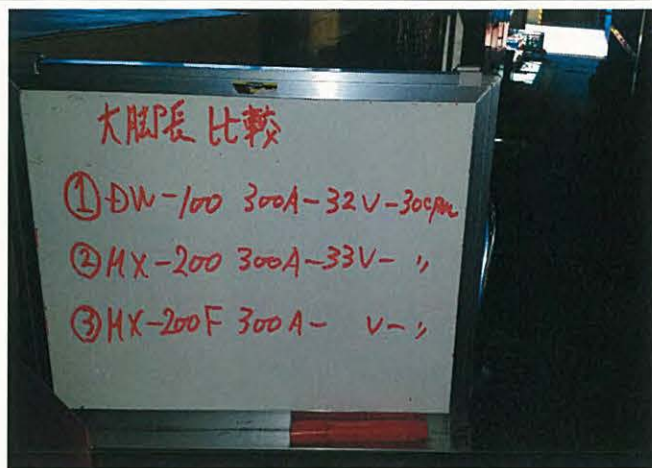 大脚長 比較
① DW-100 300A-32V-30cpm
② MX-200 300A-33V- 〃
③ MX-200F 300A-  V- 〃